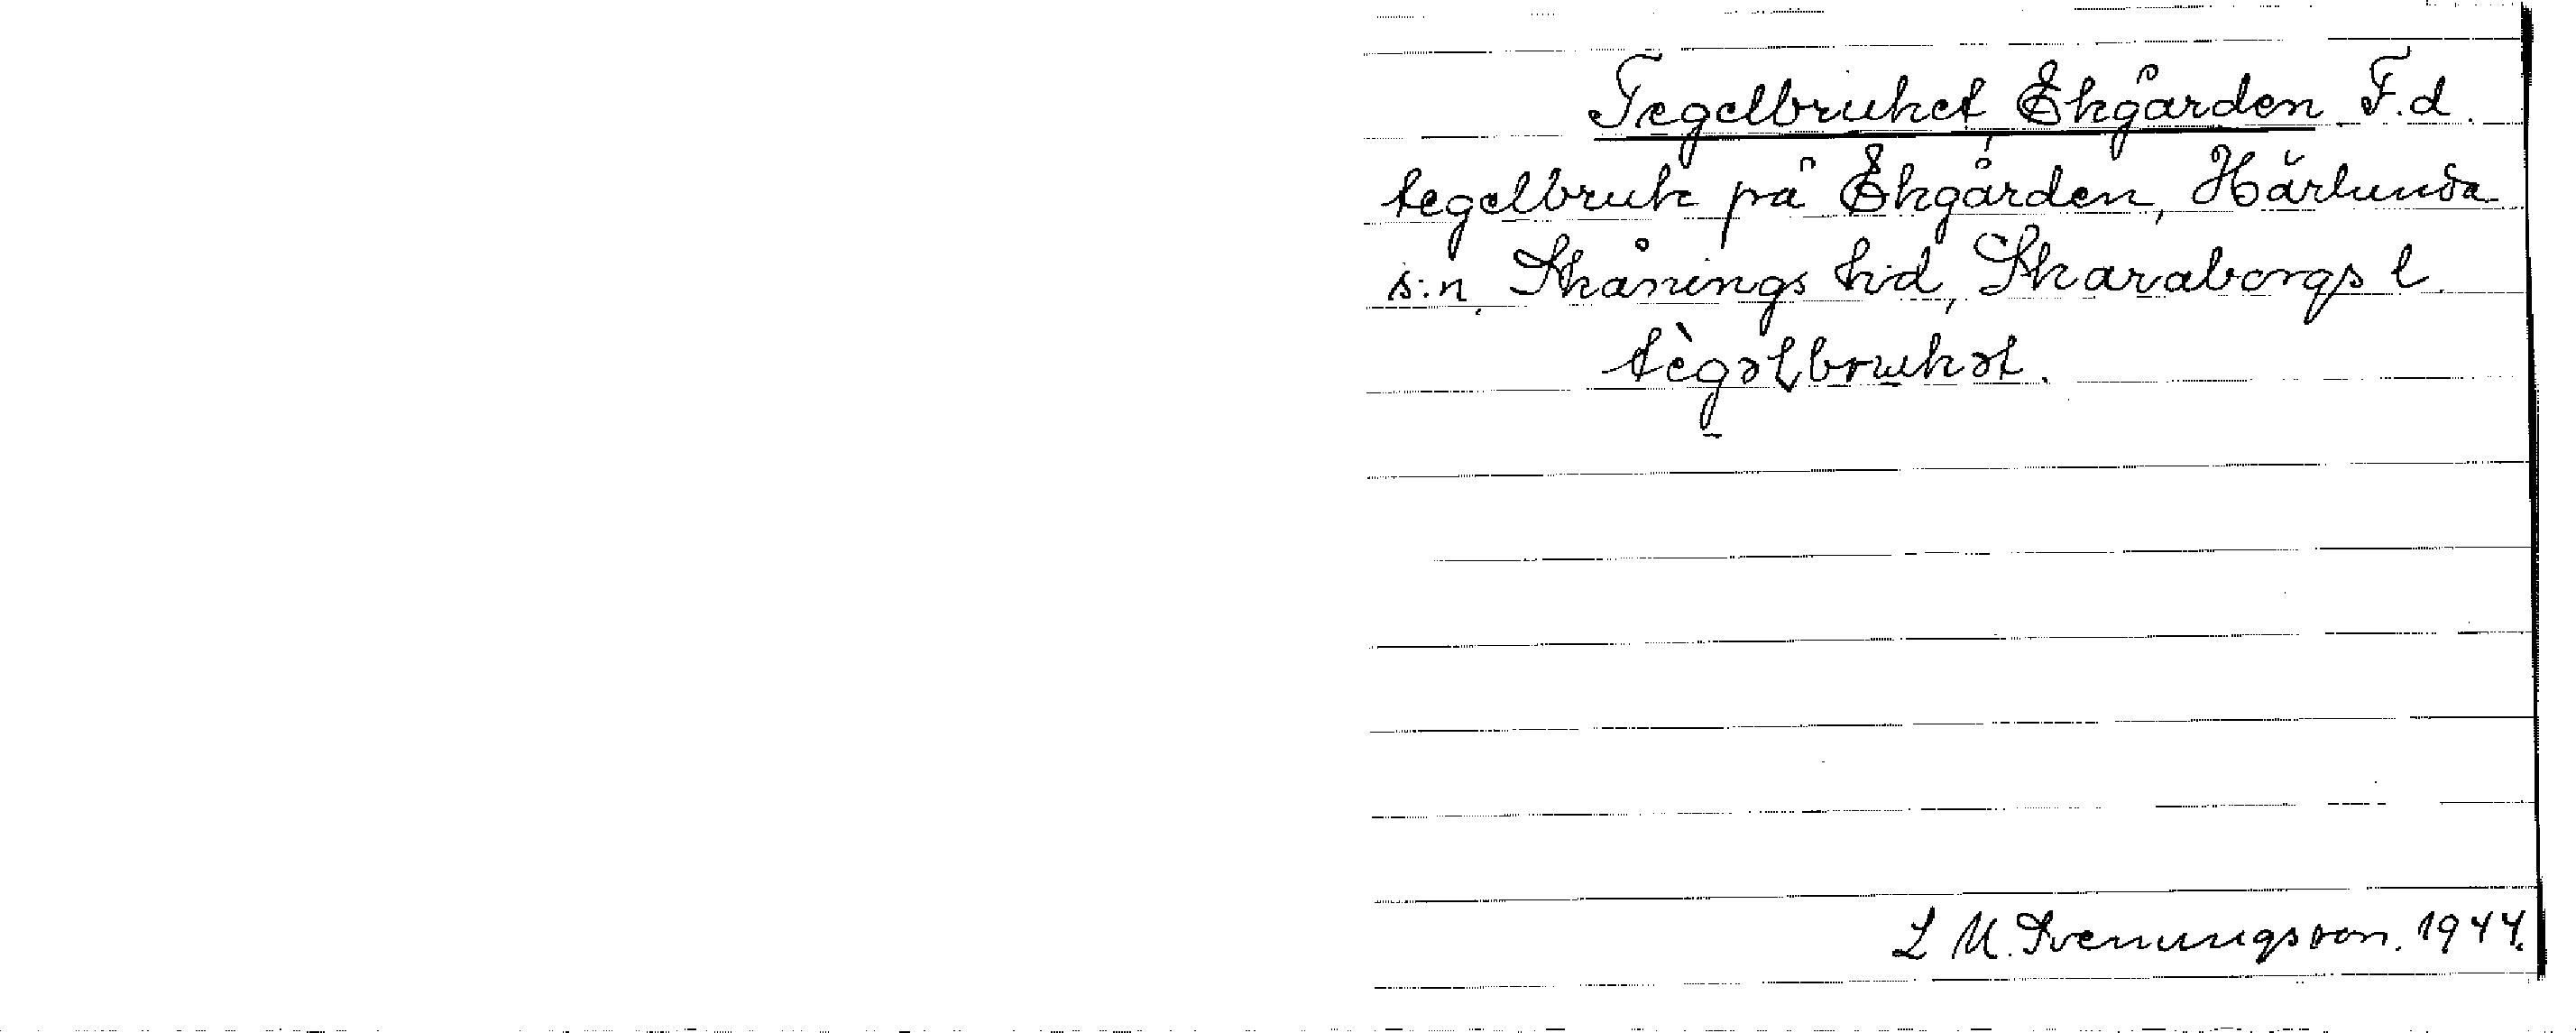 Tegelbruket, Ekgården F.d.
tegelbruk på Ekgården, Härlunda
s:n, Skånings hd, Skaraborgs l.
tègəɫbrukət.
L M. Svenungsson. 1944.